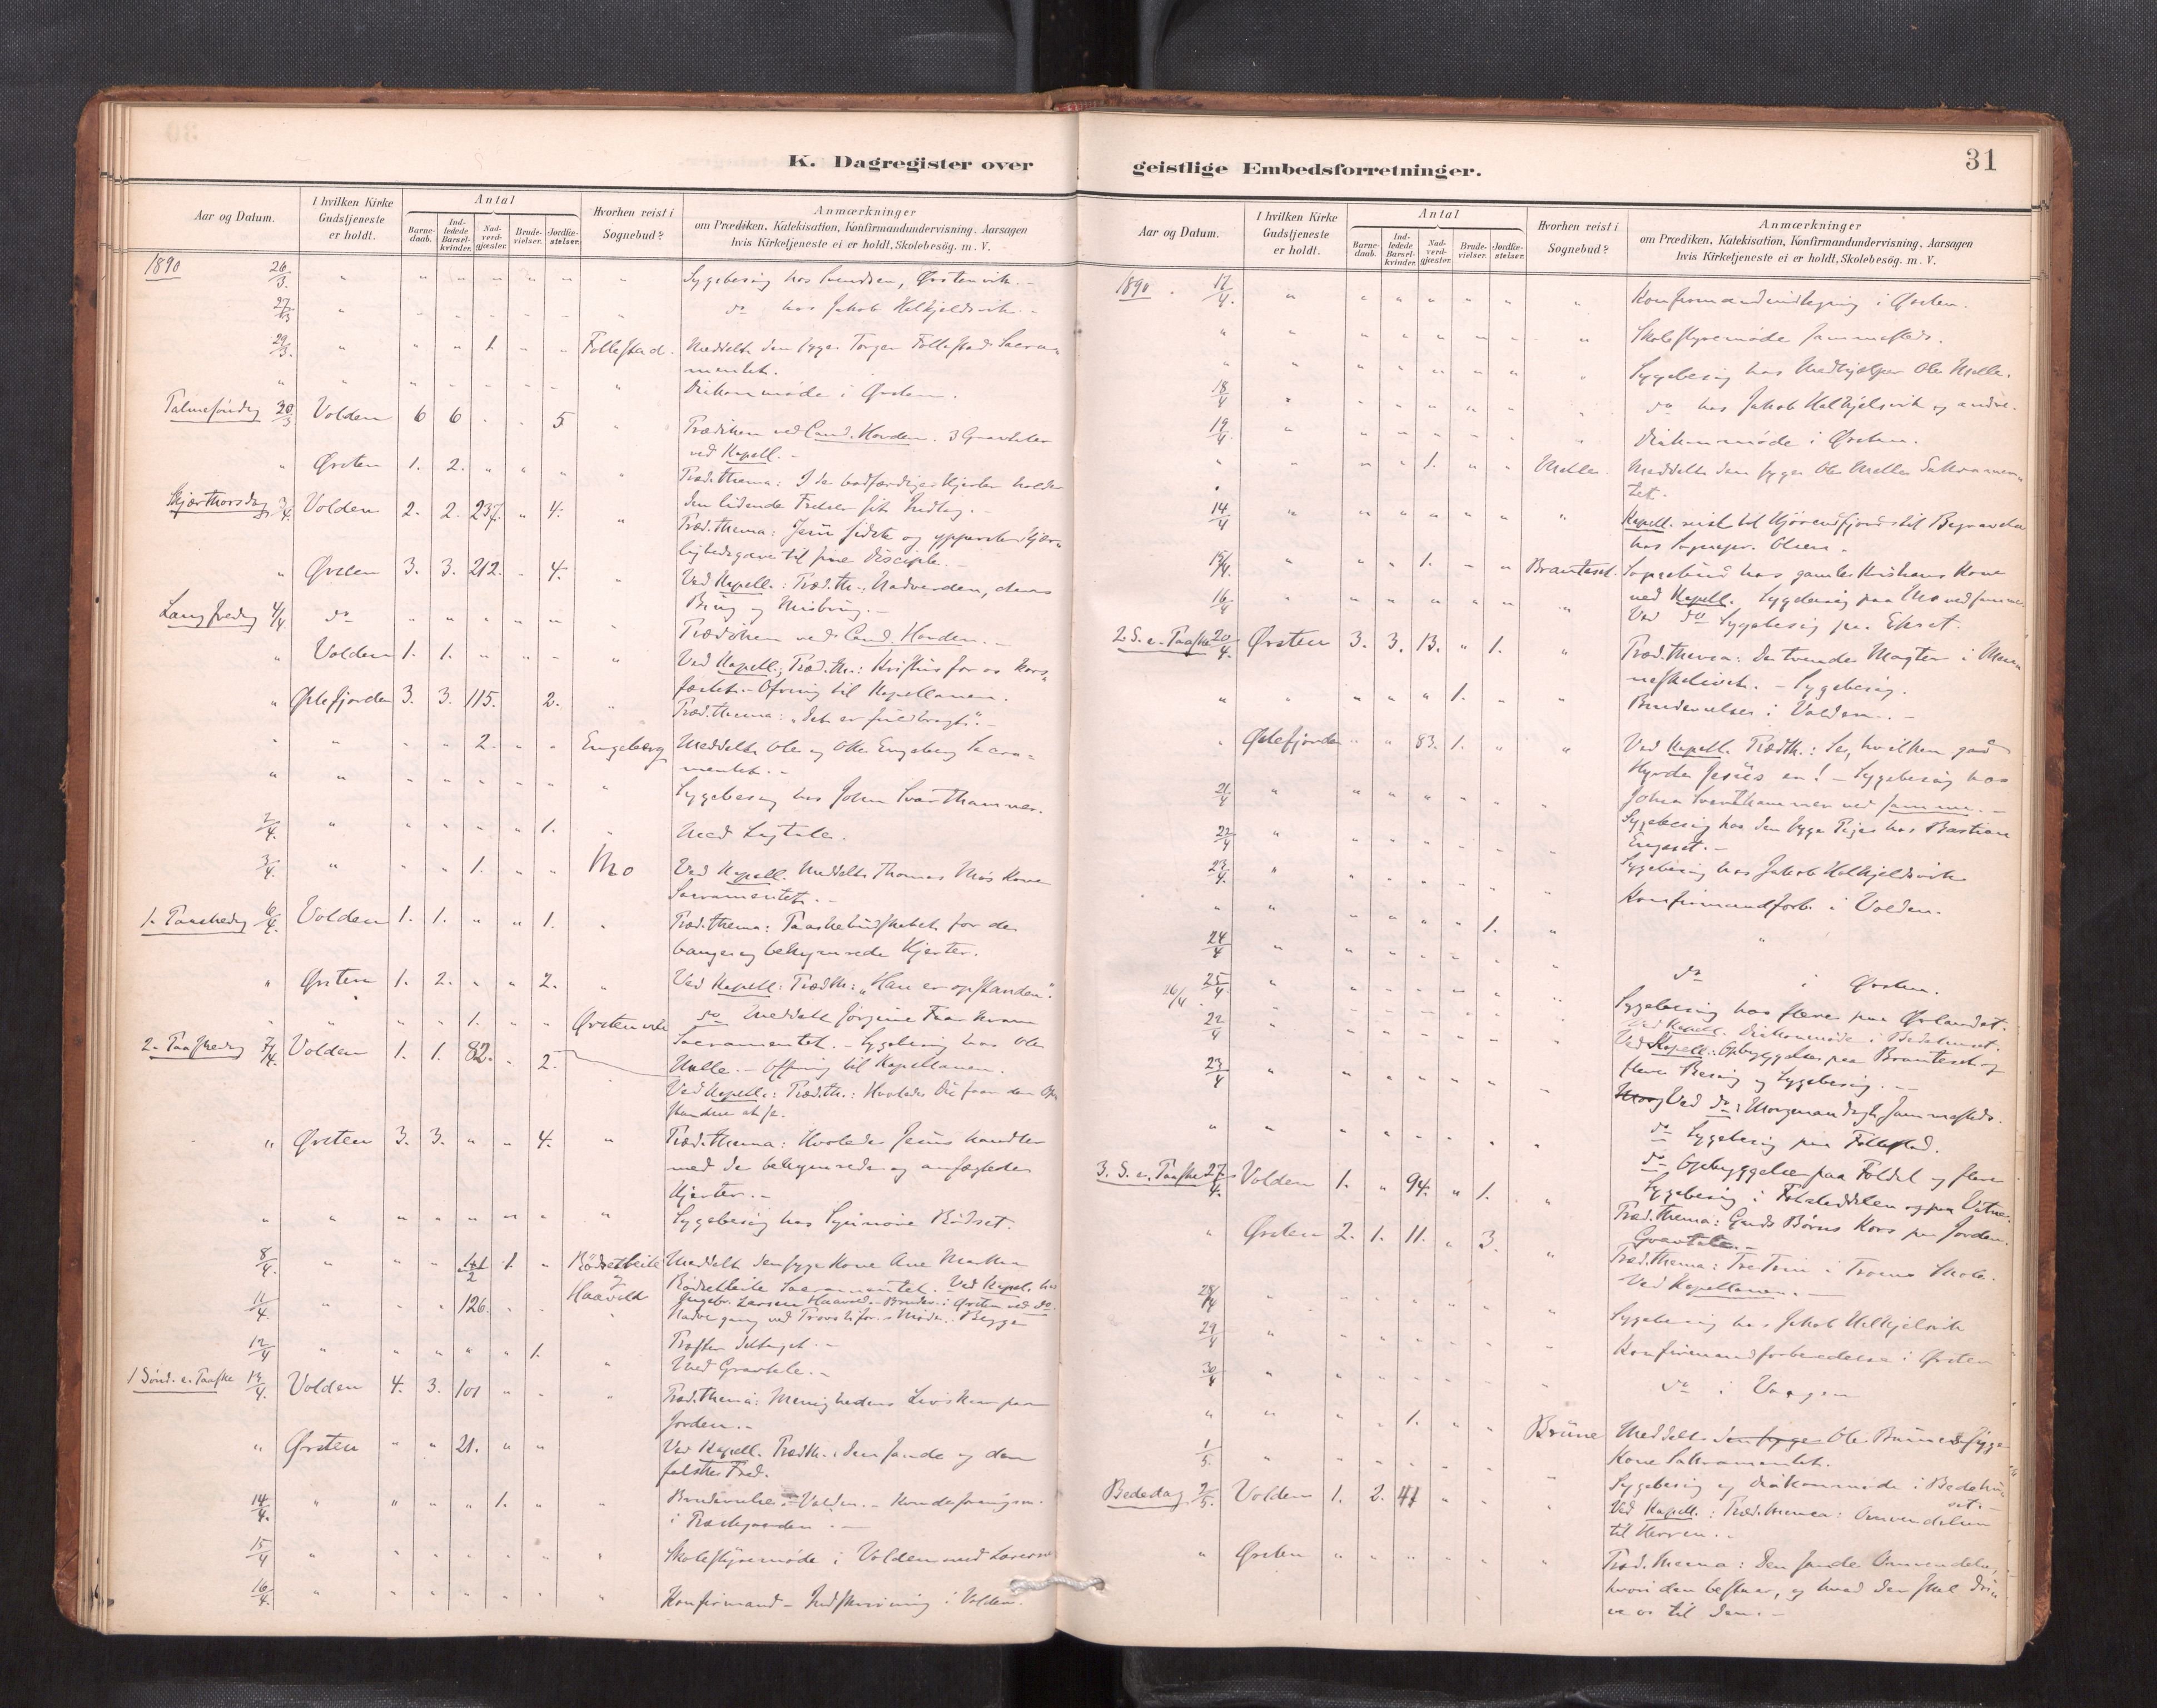 K. Dagregister over
Aar og Datum.
I hvilken Kirke Gudstjeneste er holdt.
Antal
Barne-daab.
Ind-ledede Barsel-kvinder.
Nad-verd-gjæster.
Brude-vielser.
Jordfæ-stelser.
Hvorhen reist i Sognebud?
Anmærkninger
om Prædiken, Katekisation, Konfirmandundervisning, Aarsagen
hvis Kirketjeneste ei er holdt, Skolebesøg. m. V.
1890 26/3 Sygebesøg hos Svendsen, Ørstenvik.
27/3 do hos Jakob Helkjeldsvik.
29/3. 1. Follestad. Meddelt den syge Torger Follestad Sacra-
mentet.
Diakonmøde i Ørsten.
Palmesøndag 30/3 Volden 6 6 5 Prædiken ved Cand. Hovden. 3 Gravtaler
ved Kapell.
Ørsten 1. 2. Præd.thema: I de bodfærdige Hjerter holder
den lidende Frelser sit Indtog.
Skjærthorsdag 3/4. Volden 2. 2. 237. 4. Præd.thema: Jesu sidste og ypperste Kjær-
lighedsgave til sine Disciple.
Ørsten 3. 3. 212. 4. Ved Kapell.: Præd.th.: Nadverden, dens
Brug og Misbrug.
Langfredag 4/4 do Prædiken ved Cand. Hovden.
Volden 1. 1. Ved Kapell.; Præd.th.: Kristus for os kors-
fæstet. - Ofring til Kapellanen.
Østefjorden 3. 3. 115. 2. Præd.thema: "Det er fuldbragt".
2. Engeberg Meddelt Ole og Otte Engeberg Sacra-
mentet.
Sygebesøg hos Johan Svarthammer.
2/4. 1. Med Ligtale.
3/4. 1. Mo Ved Kapell. Meddelt Thomas Mos Kone
Sacramentet.
1. Paaskedag 6/4. Volden 1. 1. 1. Præd.thema: Paaskebudskabet for de
bange og bekymrede Hjerter.
Ørsten 1. 2. 2. Ved Kapell: Præd.th.: "Han er opstanden".
1. Ørstenvik do Meddelt Jørgine
Sacramentet. - Sygebesøg hos Ole
2. Paaskedag 7/4. Volden 1. 1. 82. 2. Melle. - Offring til Kapellanen.
Ved Kapell.: Præd.th.: Hvorledes Du faar den Op-
standne at se.
Ørsten 3. 3. 4. Præd.thema: Hvorledes Jesus handler
med de bekymrede og anfægtede
Hjerter.
Sygebesøg hos Synnøve Rødset.
8/4. 1 Rødsetleite Meddelt den syge Kone Ane Martha
Haavold Rødsetleite Sacramentet. Ved Kapel. hos
11/4. 126. Ingebr. Larsen Haavold. - Brudev. i Ørsten ved do
Nadvergang ved Provstifor. Møde. Begge
12/4 1. Præster deltaget.
Med Gravtale.
1 Sønd. e. Paaske 13/4. Volden 4. 3. 101 Præd.thema: Menighedens Livskaar paa
Jorden.
Ørsten 21. Ved Kapell. Præd.th.: den sande og den
falske Fred.
14/4. 1. Brudevielse i Volden.
i Præstegaarden.
15/4 Skolestyremøde i Volden med Lærerne
16/4. Konfirmand-Indskrivning i Volden.
geistlige Embedsforretninger.
31
Aar og Datum.
I hvilken Kirke Gudstjeneste er holdt.
Antal
Barne-daab.
Ind-ledede Barsel-kvinder.
Nad-verd-gjæster.
Brude-vielser.
Jordfæ-stelser.
Hvorhen reist i Sognebud?
Anmærkninger
om Prædiken, Katekisation, Konfirmandundervisning, Aarsagen
hvis Kirketjeneste ei er holdt, Skolebesøg. m. V.
1890 17/4. Konfirmandindtegning i Ørsten.
Skolestyremøde sammesteds.
Sygebesøg hos Medhjælper Ole Melle.
18/4 do hos Jakob Helkjelsvik og andre.
19/4 Diakonmøde i Ørsten.
1. Melle. Meddelt den syge Ole Melle Sakramen-
tet.
14/4 Kapell. reist til Hjørendfjord til Begravelse
hos Sognepr. Olsen.
15/4. 1. Brauteset. Sognebud hos gamle Kristians Kone
ved Kapell. Sygebesøg paa Mo ved samme.
16/4 Ved do Sygebesøg paa Egset.
2. S. e. Paaske 20/4. Ørsten 3. 3. 13. 1. Præd.thema: De tvende Magter i Men-
neskelivet. - Sygebesøg.
1. Brudevielse i Volden.
Østefjorden 83. 1. Ved Kapell. Præd.th.: Se, hvilken god
Hyrde Jesus er! - Sygebesøg hos
Johan Svarthammer ved samme.
21/4. Sygebesøg hos den syge Pige hos Bastian
Engeset.
22/4 Sygebesøg hos Jakob Helkjeldsvik
23/4. Konfirmandforb. i Volden.
1.
24/4 do i Ørsten.
25/4. Sygebesøg hos flere paa Ørlandet.
26/4. Ved Kapell. Diakonmøde i Bedehuset.
22/4 Ved Kapell.: Opbyggelse paa Brauteset og
flere Besøg og Sygebesøg.
23/4 Morg Ved do: Morgenandagt sammesteds.
do Sygebesøg paa Follestad.
do Opbyggelse paa Foldal og flere
Sygebesøg i Follestaddalen og paa Vatne.
3. S. e. Paaske 27/4. Volden 1. 94. 1. Præd.thema: Guds Børns Kors paa Jorden.
Gravtale.
Ørsten 2. 1. 11. 3. Præd.thema: Tre Trin i Troens Skole.
Ved Kapellanen.
28/4 Sygebesøg hos Jakob Helkjelsvik
29/4 Konfirmandforberedelse i Ørsten
30/4 do i
1. Brüne Meddelt den syge Ole Brünes syge
Kone Sakramentet.
1/5 Sygebesøg og Diakonmøde i Bedehu-
set.
Bededag 2/5. Volden 1. 2. 41 Ved Kapell.: Præd.thema: Omvendelsen
til Herren.
Ørsten Præd.thema: Den sande Omvendelse,
hvori den bestaar, og hvad der skal dri-
ve os til den.